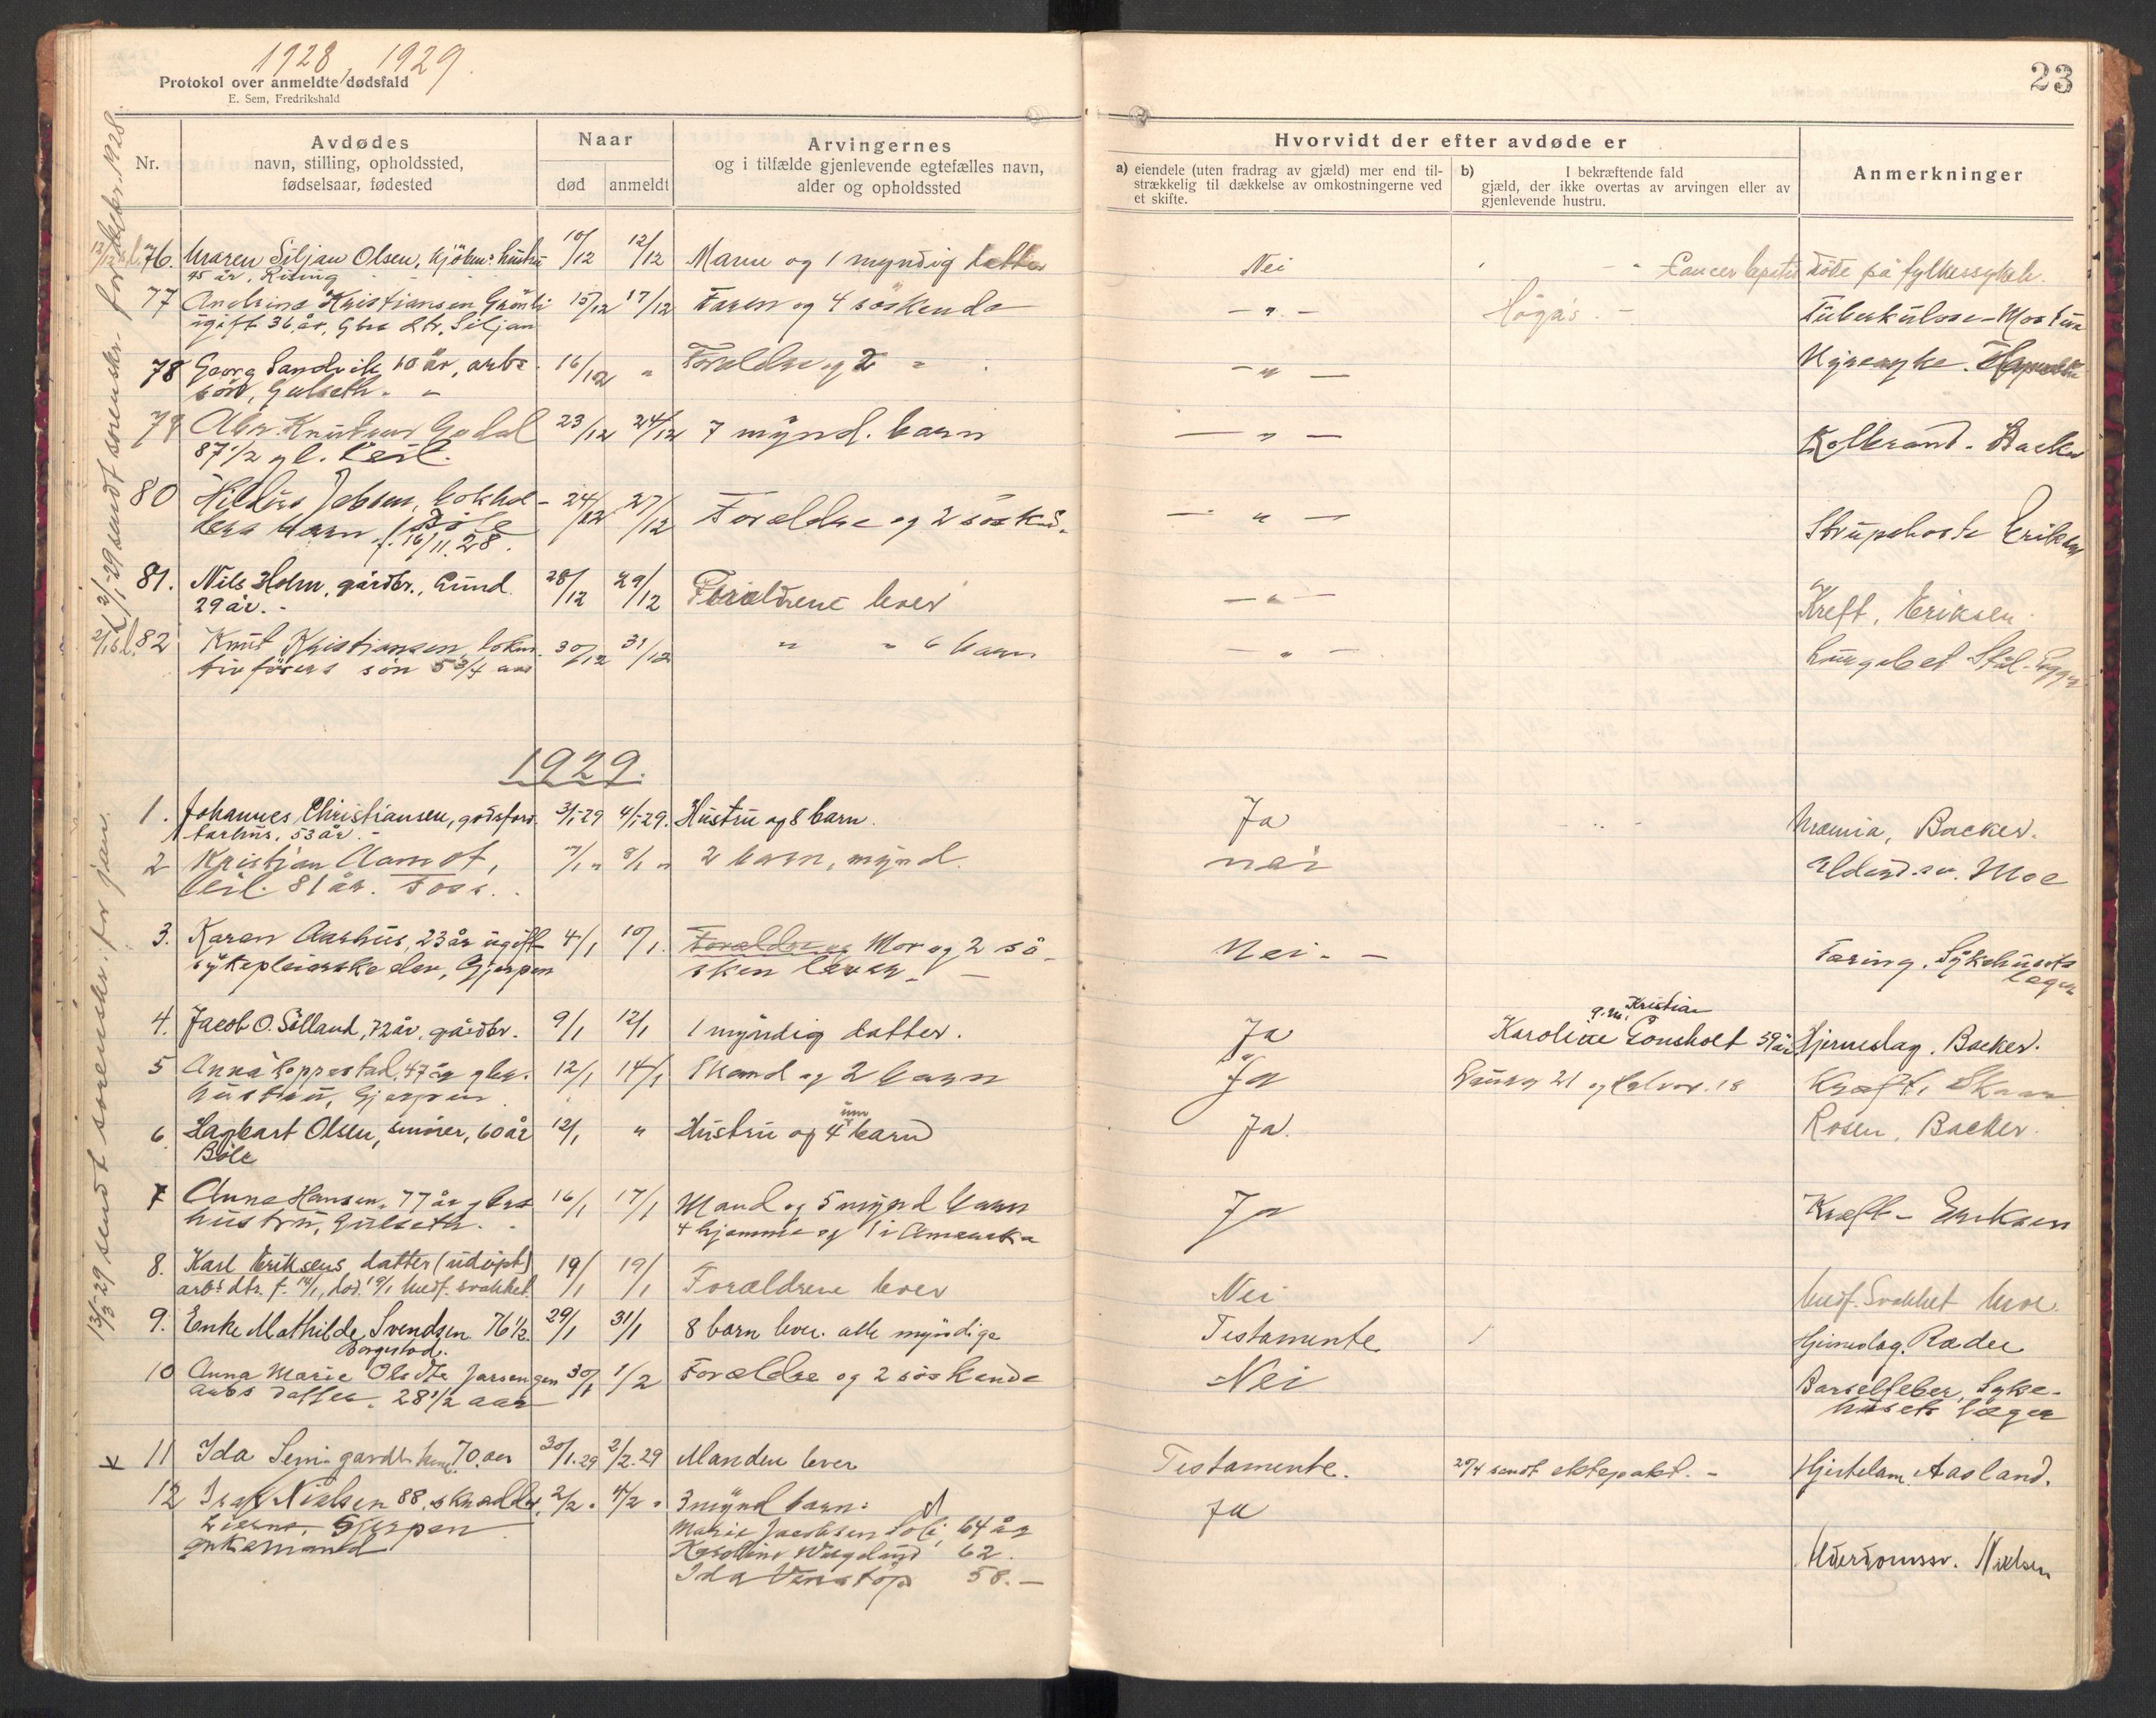 1928, 1929.
Protokol over anmeldte dødsfald
E. Sem, Fredrikshald
23
Nr.
Avdødes
navn, stilling, opholdssted,
fødselsaar, fødested
Naar
død
anmeldt
Arvingernes
og i tilfælde gjenlevende egtefælles navn,
alder og opholdssted
Hvorvidt der efter avdøde er
a) eiendele (uten fradrag av gjæld) mer end til-
strækkelig til dækkelse av omkostningerne ved
et skifte.
b) I bekræftende fald
gjæld, der ikke overtas av arvingen eller av
gjenlevende hustru.
Anmerkninger
76. Maren Siljan Olsen, hustru 10/12 12/12 Mann og 1 myndig datter Nei Cancer døde på fylkessykeh.
45 år, Rising
77 Andrina Kristiansen Grønli 15/12 17/12 Faren og 4 søskende - " - Høgås. - Tuberkulose - Mortun
ugift 36 år, gbrs dtr. Siljan
78 Georg Sandvik 10 år, arbs. 16/12 " Forældre og 2 " - " - Nyresyke.
søn, Gulseth. -
79 Abr. Knutsen Godal 23/12 24/12 7 mynd. barn - " - Kolbrand. Backer
87 1/2 gl.
80 Hildur Jebsen, bokhol- 24/12 27/12 Forældre og 2 søsk. - " - Strupehoste Eriksen
ders barn Bøle
f. 16/11.28.
81. Nils Holm, gårdbr., Lund 28/12 29/12 Forældrene lever - " - Kreft, Eriksen.
29 år. -
82 Knut Kristiansen, lokom 30/12 31/12 " " 6 barn - " - Lungebet
tivførers søn 5 3/4 aar
2/1-29 sendt sorenskr. for deber. 1928.
1929.
1. Johannes Christiansen, godsforv. 3/1-29 4/1-29. Hustru og 8 barn. Ja Uræmia, Backer.
53 år. -
2 Kristjan Aamot, 7/1 " 8/1 " 2 barn, mynd. nei Moe
81 år. Foss.
3. Karen Aarhus, 23 år ugift 4/1 10/1. Forældre og Mor og 2 sø- Nei. - Tæring. Sykehusets
sykepleierske elev, Gjerpen sken lever. - læger
4. Jacob O. Sølland, 72 år, gårdbr. 9/1 12/1 1 myndig datter. Ja g.m. Kristian
Karoline Gonsholt 39 år Hjerneslag. Backer.
5 Anna Hoppestad, 47 år gbr. 12/1 14/1 Mand og 2 barn Ja 21 og Halvor. 18 Kræft,
hustru, Gjerpen
6. Hagbart Olsen, snüier, 60 år 12/1 " Hustru og 4 um barn Ja. Rosen, Backer.
Bøle
7 Anna Hansen, 77 år gbrs 16/1 17/1 Mand og 5 mynd barn Ja Kræft - Eriksen
hustru, Gulseth. 4 hjemme og 1 i Amerika
8. Karl Eriksens datter (udøpt) 19/1 19/1 Forældrene lever Nei Medf. Svakhet Moe.
arbs dtr. f. 14/1, død 19/1 Medf. svakhet
9. Enke Mathilde Svendsen 76 1/2 29/1 31/1 8 barn lever. alle myndige Testamente / Hjerneslag. Ræder
Borgestad.
10 Anna Marie Olsdtr Jørsengen 30/1 1/2 Forældre og 2 søskende Nei Barselfeber, Syke-
arbs datter. 28 1/2 aar husets læger
11 Ida Semi gardbr. 70 aar 30/1.29 2/2.29 Manden lever Testamente. 20/4 sendt ektepakt. - Hjertelam. Aasland.
12 Isak Nielsen 88, skrædder 2/2 " 4/2 " 3 mynd barn: Ja
Gjerpen Marie Jacobsen Soli, 64 år
enkemand Karoline 62.
Ida Venstøp 58. -
Alderdomssv. Nielsen
13/3-29 sendt sorenskr. for jan.